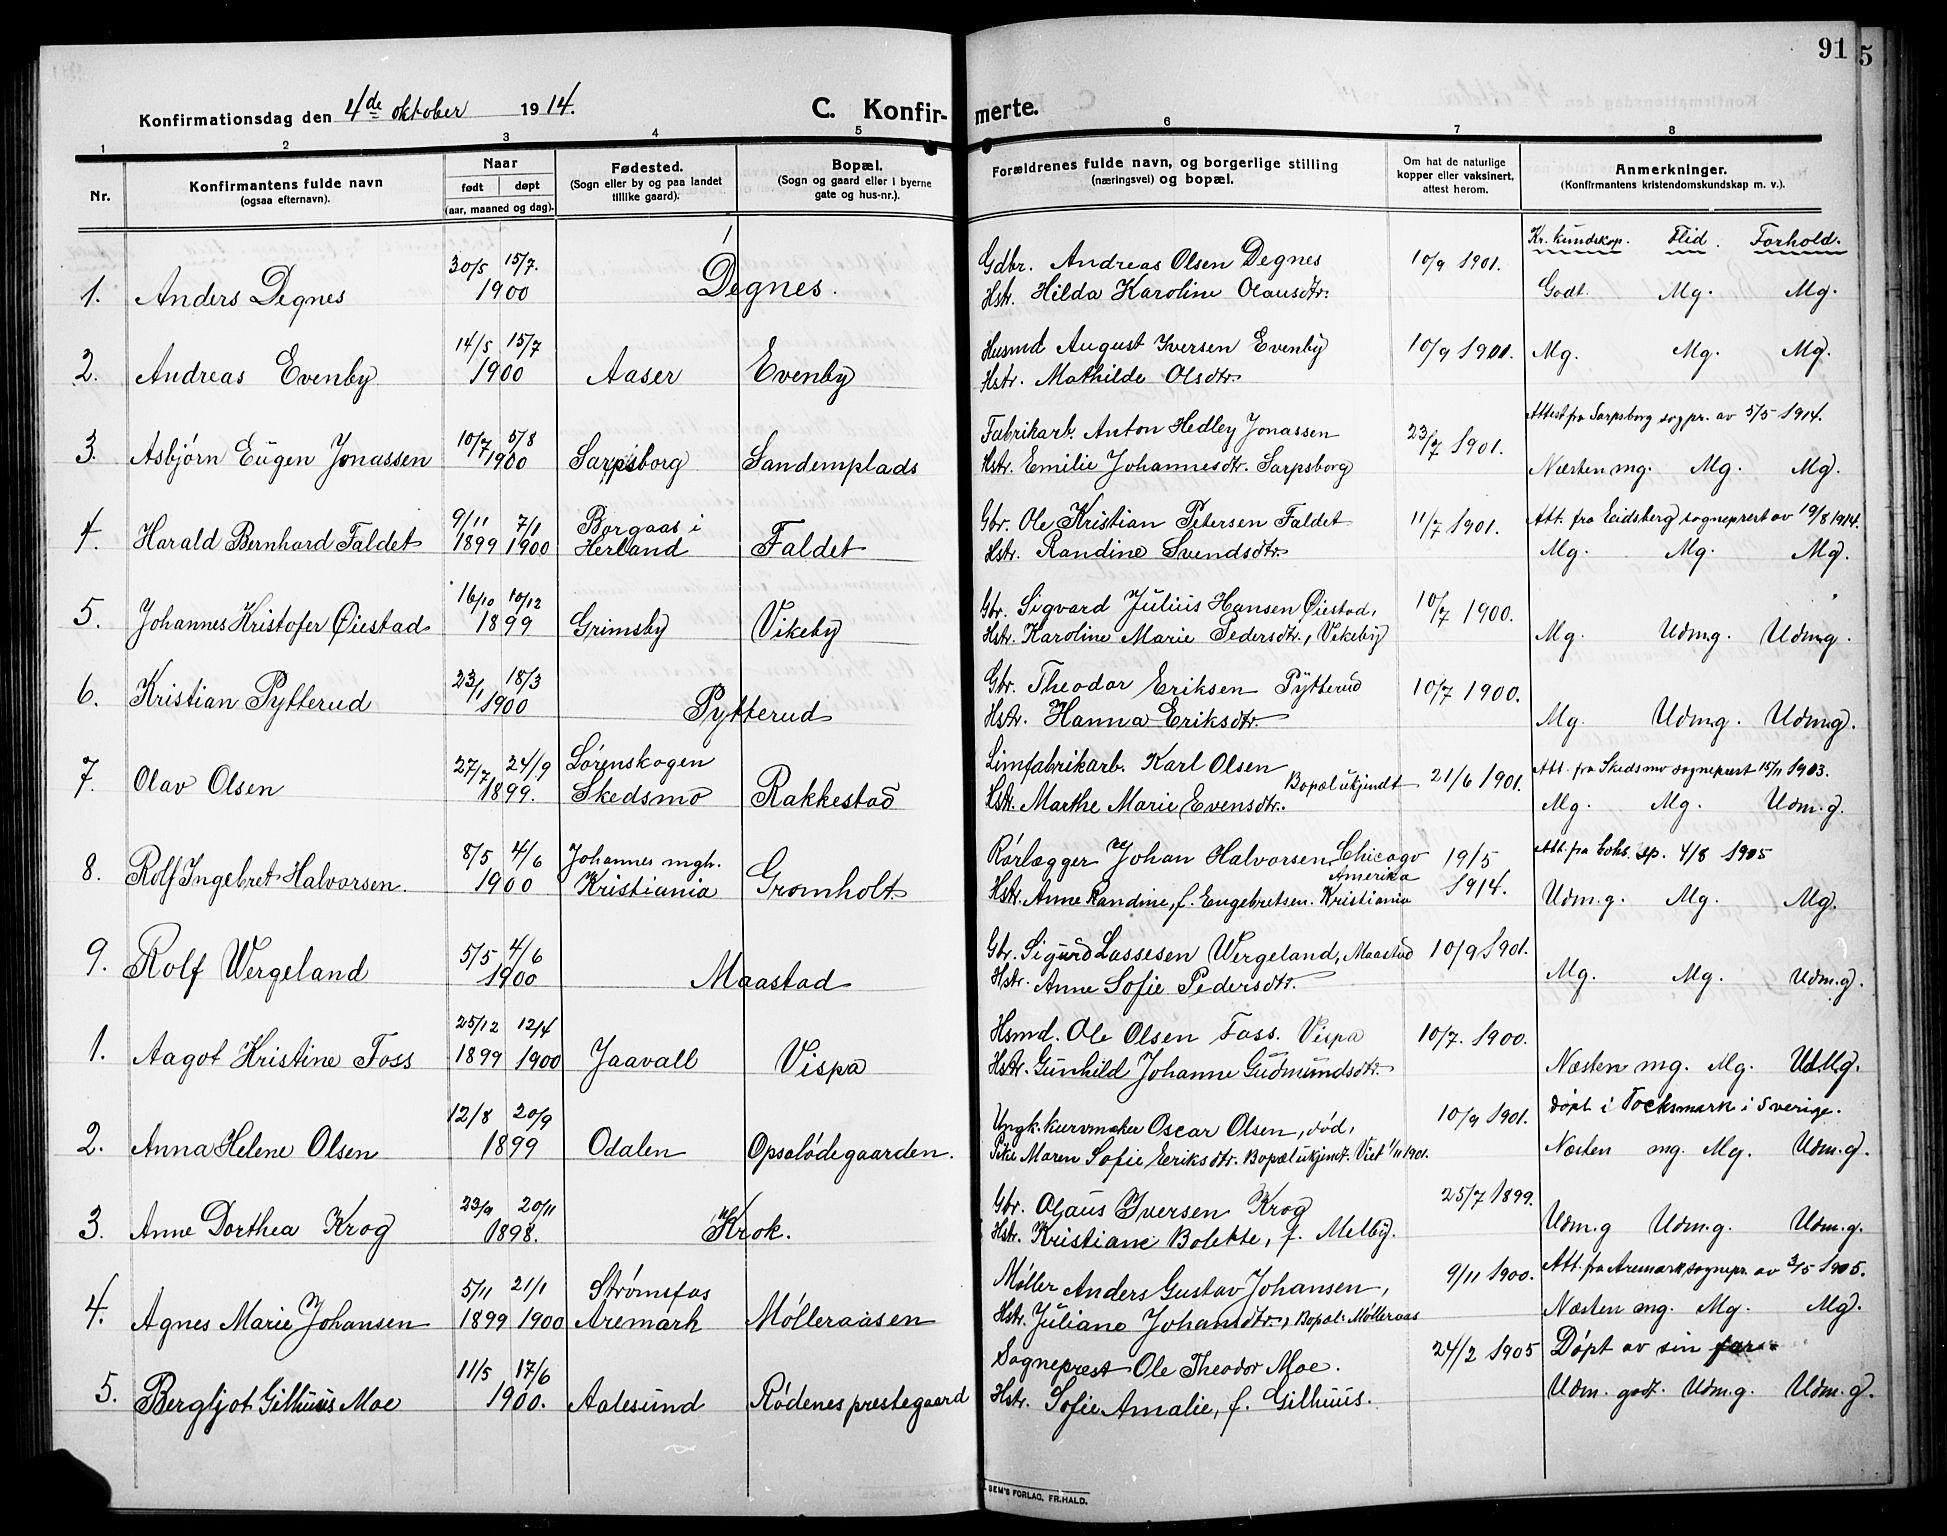 91
5
Konfirmationsdag den 4de oktober 1914.
C. Konfir-
merte.
1 2 3 4 5 6 7 8
Nr.
Konfirmantens fulde navn
(ogsaa efternavn).
Naar
født døpt
(aar, maaned og dag).
Fødested.
(Sogn eller by og paa landet
tillike gaard).
Bopæl.
(Sogn og gaard eller i byerne
gate og hus-nr.).
Forældrenes fulde navn, og borgerlige stilling
(næringsvei) og bopæl.
Om hat de naturlige
kopper eller vaksinert,
attest herom.
Anmerkninger.
(Konfirmantens kristendomskundskap m. v.).
Kr. kundskap. Flid. Forhold.
30/5 15/7. Gdbr. Andreas Olsen Degnes 10/9 1901.
1. Anders Degnes 1900 Degnes. Hstr. Hilda Karoline Olausdtr. Godt. Mg. Mg.
14/5 15/7 Husmd August Iversen Evenby 10/9 1901. Mg. Mg. Mg.
2. Andreas Evenby 1900 Aaser Evenby Hstr. Mathilde Olsdtr.
Attest fra Sarpsborg sogpr. av 5/5 1914.
10/7 5/8 Fabrikarb. Anton Hedley Jonassen 23/7 1901.
3. Asbjørn Eugen Jonassen 1900 Sarpsborg Sandemplads Hstr. Emilie Johannesdtr. Sarpsborg Næsten mg. Mg. Mg.
9/11 7/1 Borgaas i Gbr. Ole Kristian Petersen Faldet 11/7 1901. Att. fra Eidsberg sogneprest av 19/8 1914.
4. Harald Bernhard Faldet 1899 1900 Herland Faldet Hstr. Randine Svendsdtr. Mg. Mg. Mg.
16/10 10/12 Gbr. Sigvard Julius Hansen Øiestad, 10/7 1900.
5. Johannes Kristofer Øiestad 1899 Grimsby Vikeby Hstr. Karoline Marie Pedersdtr., Vikeby Mg. Udm.g. Udm.g.
23/1 18/3 Gbr. Theodor Eriksen Pytterud 10/7 1900.
6. Kristian Pytterud 1900 Pytterud Hstr. Hanna Eriksdtr. Mg. Udm.g. Udm.g.
27/7 24/9 Lørenskogen Limfabrikarb. Karl Olsen Bopæl ukjendt 21/6 1901. Att. fra Skedsmo sogneprest 15/11 1903.
7. Olav Olsen 1899. Skedsmo Rakkestad Hstr. Marthe Marie Evensdtr. Mg. Mg. Udm.g.
8/5 4/6 Johannes mgh. Rørlægger Johan Halvorsen Chicago Amerika 19/5 Att. fra sp. 4/8 1905
8. Rolf Ingebret Halvorsen. 1900 Kristiania Gromholt Hstr. Anne Randine, f. Engebretsen. Kristiania 1914. Udm.g. Mg. Mg.
5/5 4/6 Gbr. Sigurd Lassesen Wergeland, Maastad 10/9 1901.
9. Rolf Wergeland 1900 Maastad Hstr. Anne Sofie Pedersdtr. Mg. Mg. Udm.g.
25/12 12/4 Hsmd. Ole Olsen Foss. Vispa 10/7. 1900.
1. Aagot Kristine Foss 1899 1900 Jaavall Vispa Hstr. Gunhild Johanne Gudmundsdtr. Næsten mg. Mg. Ud.Mg.
12/8 20/9 Ungk. kurvmaker Oscar Olsen, død, 10/9 1901. Døpt i Tocksmark i Sverige.
2. Anna Helene Olsen 1899 Odalen Opsalødegaarden. Pike Maren Sofie Eriksdtr. Bopæl ukjendt. Viet 1/11 1901. Næsten mg. Mg. Udm.g.
23/9 20/11 Gbr. Olaus Iversen Krog 25/7 1899.
3. Anne Dorthea Krog 1898. Krok. Hstr. Kristiane Bolette, f. Melby. Udm.g Udm.g. Udm.g.
5/11 21/1 Strømsfos Møller Anders Gustav Johansen, 9/11 1900. Att. fra Aremark sognepr. av 3/5 1905.
4. Agnes Marie Johansen 1899 1900 Aremark Mølleraasen Hstr. Juliane Johansdtr., Bopæl: Mølleraas Næsten mg. Mg. Mg.
11/5 17/6 Sogneprest Ole Theodor Moe. 24/2 1905 Døpt av sin far.
5. Bergljot Gilhuus Moe 1900. Aalesund Rødenes prestegaard Hstr. Sofie Amalie, f. Gilhuus. Udm. godt. Udm.g. Udm.g.
SEM'S FORLAG, FR.HALD.